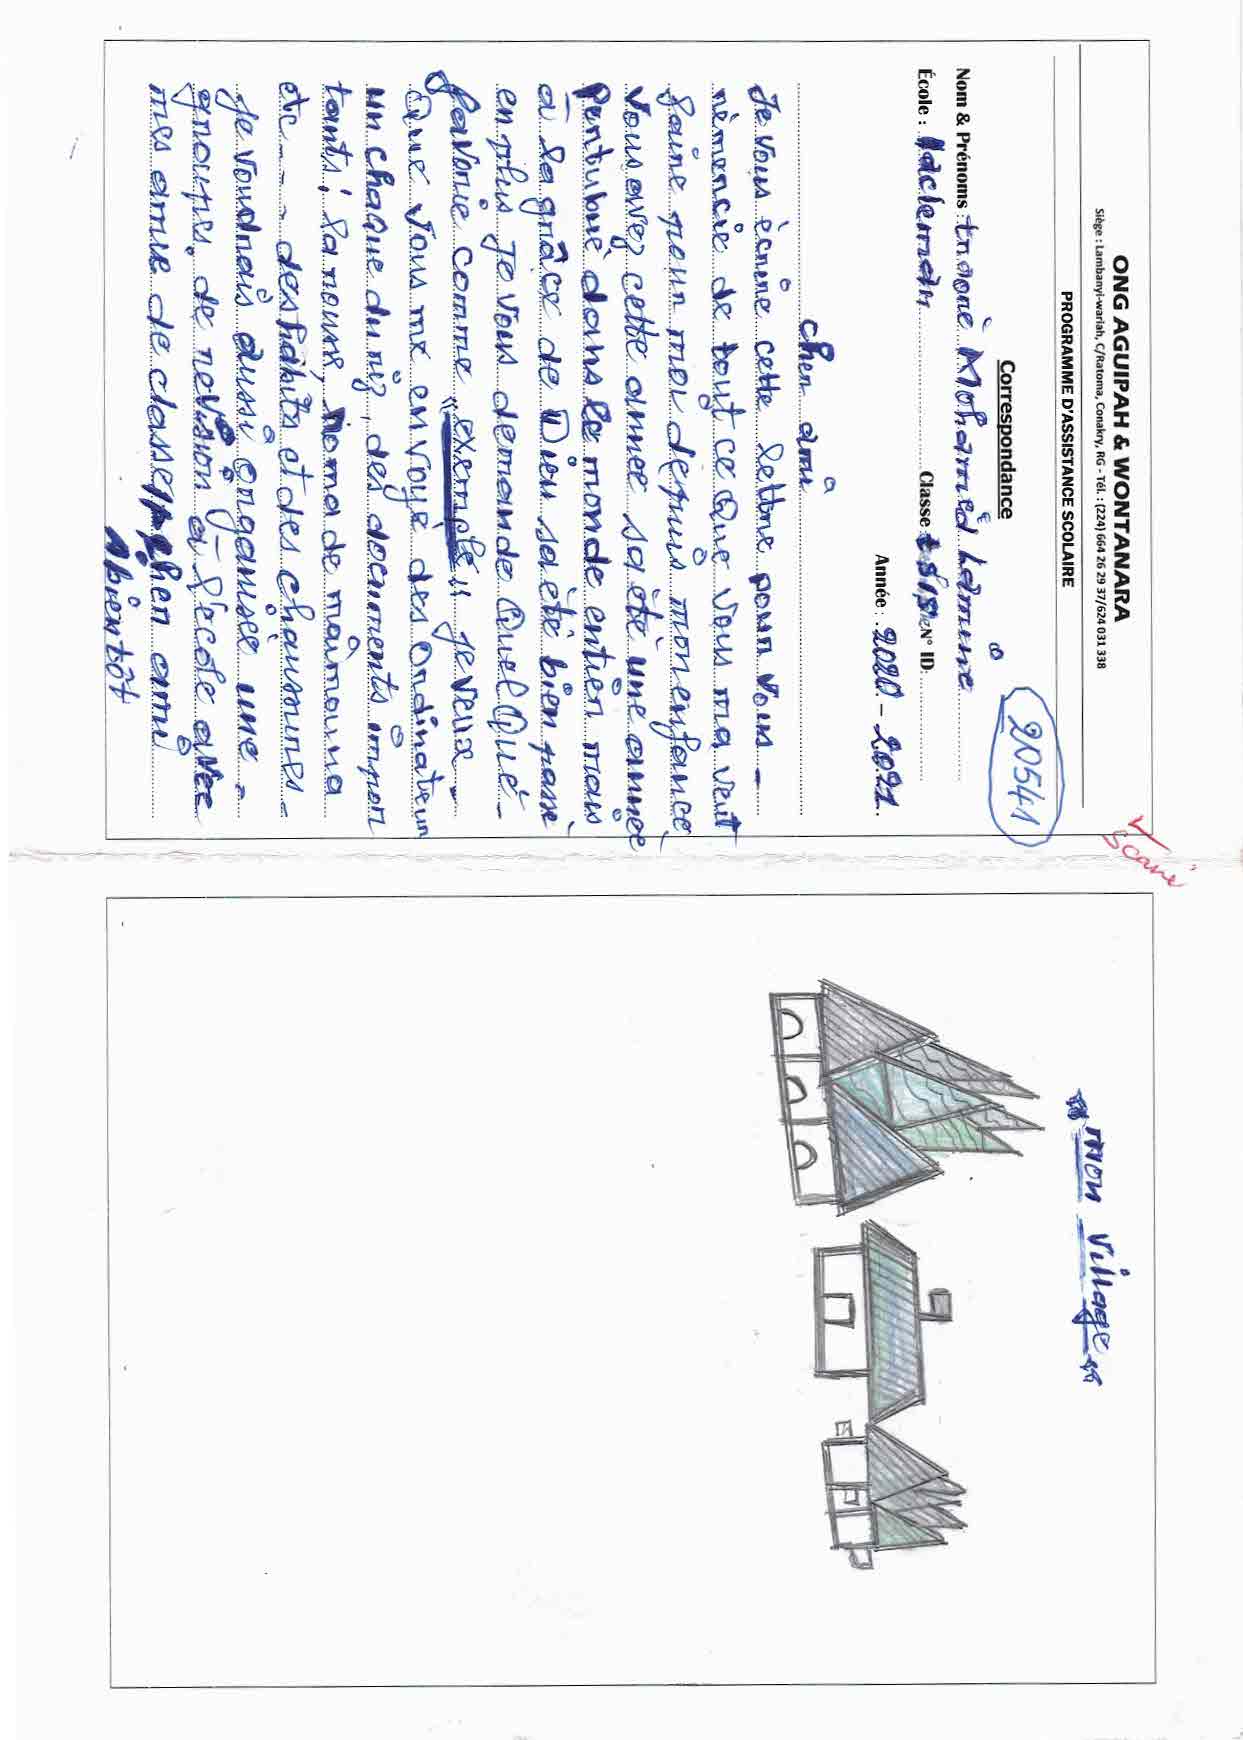 ONG AGUIPAH & WONTANARA
Siège : Lambanyi-wariah, C/Ratoma, Conakry, RG - Tél. : (224) 664 26 29 37/624 031 338
PROGRAMME D'ASSISTANCE SCOLAIRE
Scané
20541
Correspondance
Nom & Prénoms : traoré Mohamed Lamine
École : Classe N° ID:
Année : 2020 - 2021
cher ami
Je vous écrire cette lettre pour vous -
rémercie de tout ce que vous ma veut
faire pour moi depuis mon enfance,
vous avez cette année sa été une année
Pertubué dans le monde entier mais
à la grâce de Dieu sa été bien passé
en plus je vous demande Quel Que -
favorie comme " exemple " je veux -
Que vous me envoyé des ordinateur
un chaque du riz, des documents impor
tants,
etc - - - des habits et des chaussures -
Je voudrais aussi organisée une -
groupes de revision à l'école avec
mes amie de classe cher ami
Abientôt
mon village